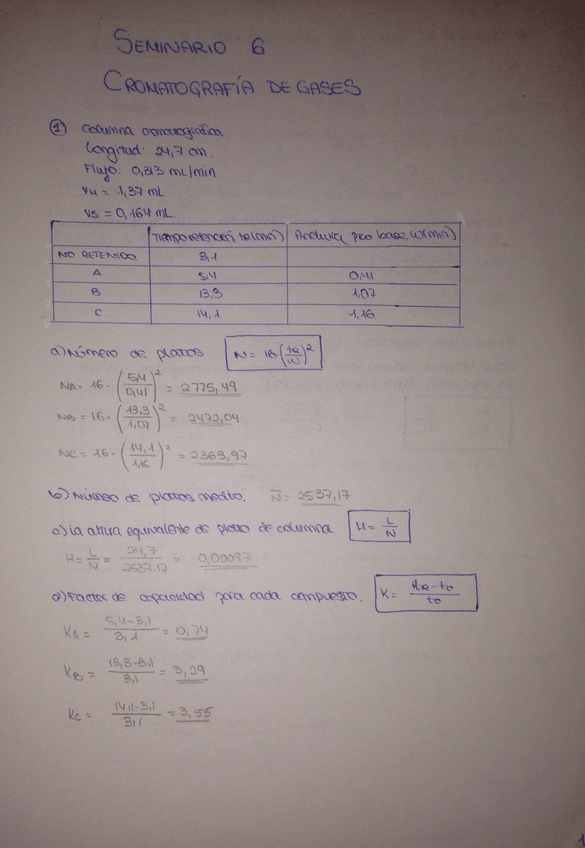 SEMINARIO 6
CROMATOGRAFÍA DE GASES
1) Columna cromatográfica
Longitud: 24,7 cm.
Flujo: 0,313 mL/min.
VM = 1,37 mL
VS = 0,164 mL
Tiempo retención, tR (min) Anchura pico base, W (min)
NO RETENIDO 3,1
A 5,4 0,41
B 13,3 1,07
C. 14,1 1,16
a) Número de platos N = 16 (tR/W)²
NA = 16 · (5,4/0,41)² = 2775,49
NB = 16 · (13,3/1,07)² = 2472,04
NC = 16 · (14,1/1,16)² = 2363,97
b) Número de platos medio. N̄ = 2537,17
c) La altura equivalente de plato de columna H = L/N
H = L/N = 24,7/2537,17 = 0,00097
d) Factor de capacidad para cada compuesto. K = tR - t0/t0
KA = 5,4-3,1/3,1 = 0,74
KB = 13,3-3,1/3,1 = 3,29
KC = 14,1-3,1/3,1 = 3,55